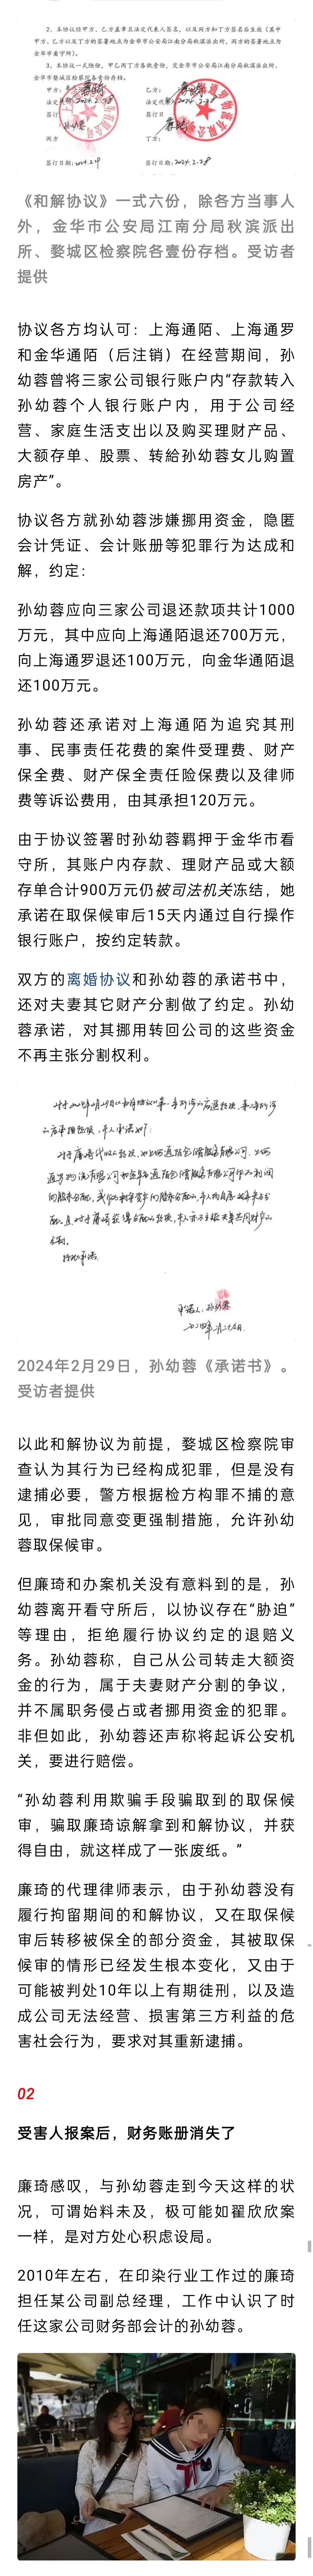 2、本协议经甲方、乙方盖章且法定代表人签名，以及丙方和丁方签名后生效（其中
甲方、乙方以及丁方的签署地点为金华市公安局江南分局秋滨派出所，丙方的签署地点为
金华市看守所）。
3、本协议一式陆份，甲乙丙丁方各执壹份，交金华市公安局江南分局秋滨派出所、
金华市婺城区检察院各壹份存档。
甲方：
乙方：
法定代表
2024.2.28
法定代
2024.2.28
签订
签订
丙方
孙幼蓉
丁方：
签订日期：2024.2.29
签订日期：2024.2.28
《和解协议》一式六份，除各方当事人
外，金华市公安局江南分局秋滨派出
所、婺城区检察院各壹份存档。受访者
提供
协议各方均认可：上海通陌、上海通罗
和金华通陌（后注销）在经营期间，孙
幼蓉曾将三家公司银行账户内“存款转入
孙幼蓉个人银行账户内，用于公司经
营、家庭生活支出以及购买理财产品、
大额存单、股票、转给孙幼蓉女儿购置
房产”。
协议各方就孙幼蓉涉嫌挪用资金，隐匿
会计凭证、会计账册等犯罪行为达成和
解，约定：
孙幼蓉应向三家公司退还款项共计1000
万元，其中应向上海通陌退还700万元，
向上海通罗退还100万元，向金华通陌退
还100万元。
孙幼蓉还承诺对上海通陌为追究其刑
事、民事责任花费的案件受理费、财产
保全费、财产保全责任险保费以及律师
费等诉讼费用，由其承担120万元。
由于协议签署时孙幼蓉羁押于金华市看
守所，其账户内存款、理财产品或大额
存单合计900万元仍被司法机关冻结，她
承诺在取保候审后15天内通过自行操作
银行账户，按约定转款。
双方的离婚协议和孙幼蓉的承诺书中，
还对夫妻其它财产分割做了约定。孙幼
蓉承诺，对其挪用转回公司的这些资金
不再主张分割权利。
承诺人：孙幼蓉
2024年2月29日，孙幼蓉《承诺书》。
受访者提供
以此和解协议为前提，婺城区检察院审
查认为其行为已经构成犯罪，但是没有
逮捕必要，警方根据检方构罪不捕的意
见，审批同意变更强制措施，允许孙幼
蓉取保候审。
但廉琦和办案机关没有意料到的是，孙
幼蓉离开看守所后，以协议存在“胁迫”
等理由，拒绝履行协议约定的退赔义
务。孙幼蓉称，自己从公司转走大额资
金的行为，属于夫妻财产分割的争议，
并不属职务侵占或者挪用资金的犯罪。
非但如此，孙幼蓉还声称将起诉公安机
关，要进行赔偿。
“孙幼蓉利用欺骗手段骗取到的取保候
审，骗取廉琦谅解拿到和解协议，并获
得自由，就这样成了一张废纸。”
廉琦的代理律师表示，由于孙幼蓉没有
履行拘留期间的和解协议，又在取保候
审后转移被保全的部分资金，其被取保
候审的情形已经发生根本变化，又由于
可能被判处10年以上有期徒刑，以及造
成公司无法经营、损害第三方利益的危
害社会行为，要求对其重新逮捕。
02
受害人报案后，财务账册消失了
廉琦感叹，与孙幼蓉走到今天这样的状
况，可谓始料未及，极可能如翟欣欣案
一样，是对方处心积虑设局。
2010年左右，在印染行业工作过的廉琦
担任某公司副总经理，工作中认识了时
任这家公司财务部会计的孙幼蓉。